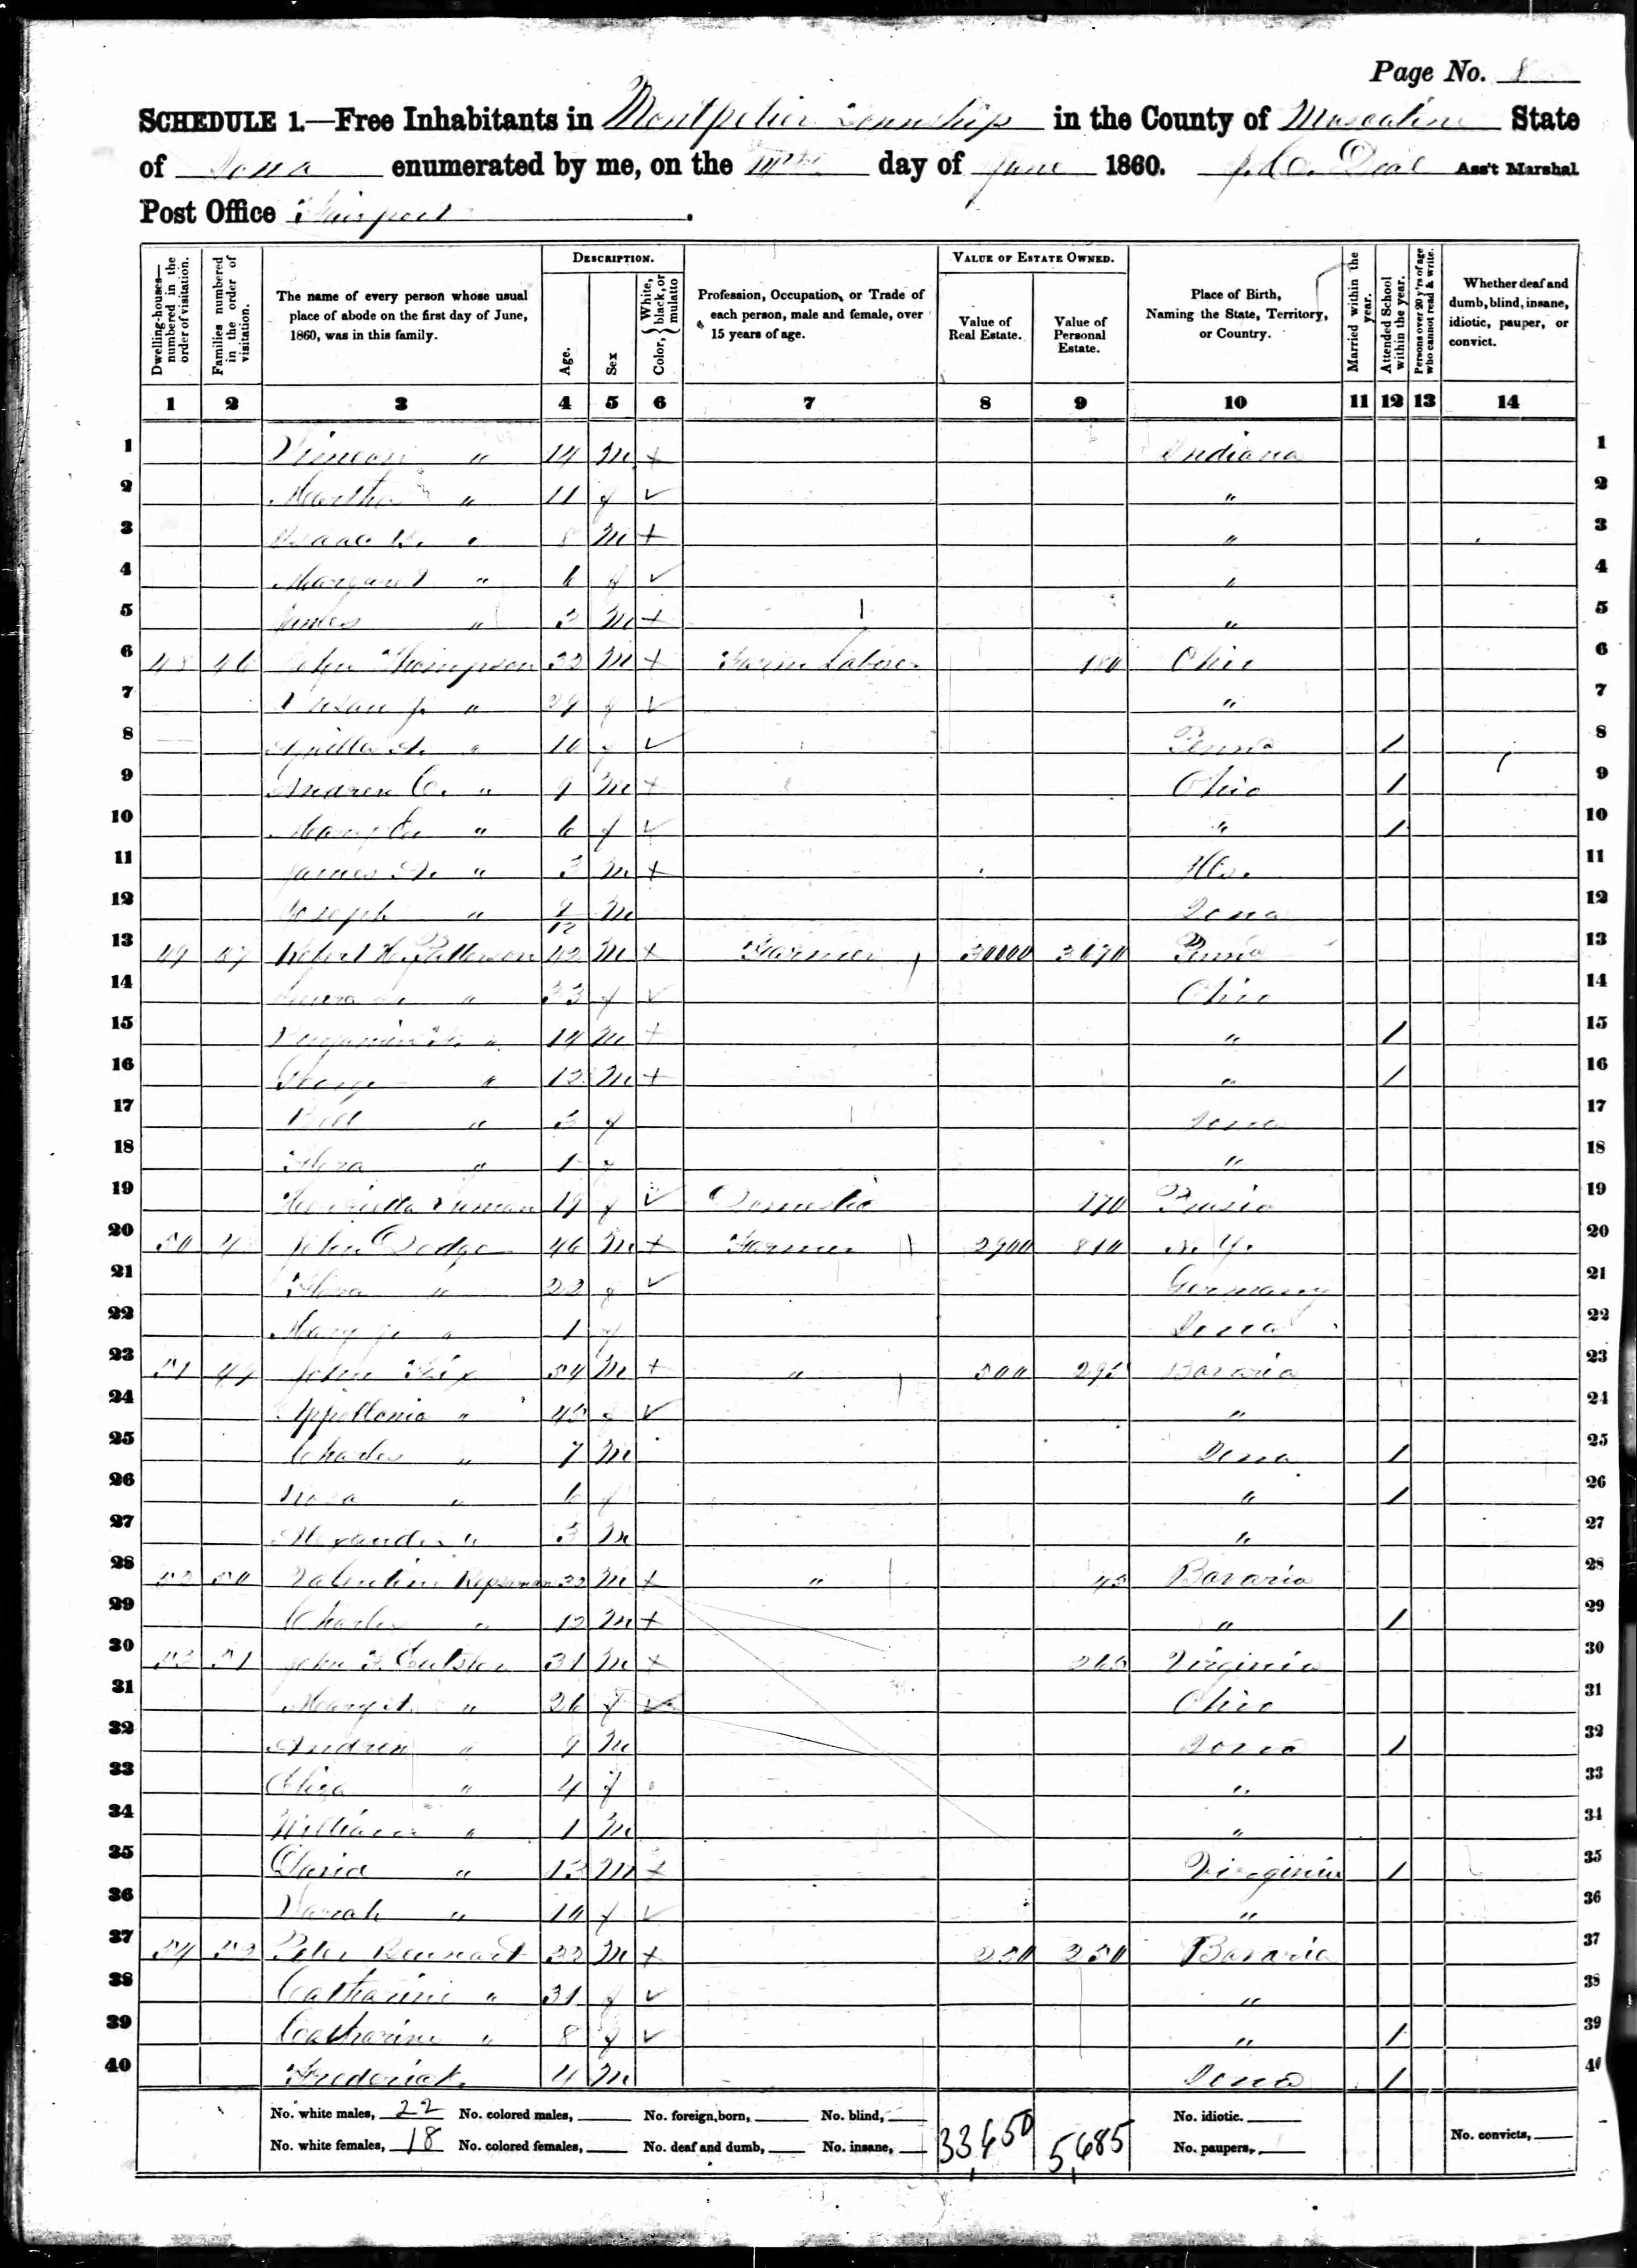 Page No. 8
SCHEDULE 1.—Free Inhabitants in Montpelier Township in the County of Muscatine State
of Iowa enumerated by me, on the day of June 1860. Ass't Marshal
Post Office Fairport.
Dwelling-houses—numbered in the order of visitation.
Families numbered in the order of visitation.
The name of every person whose usual place of abode on the first day of June, 1860, was in this family.
DESCRIPTION.
Age.
Sex
Color, { White, black, or mulatto
Profession, Occupation, or Trade of each person, male and female, over 15 years of age.
VALUE OF ESTATE OWNED.
Value of Real Estate.
Value of Personal Estate.
Place of Birth, Naming the State, Territory, or Country.
Married within the year.
Attended School within the year.
Persons over 20 y'rs of age who cannot read & write.
Whether deaf and dumb, blind, insane, idiotic, pauper, or convict.
1 2 3 4 5 6 7 8 9 10 11 12 13 14
1 Simeon " 14 M + Indiana 1
2 Martha " 11 f ✓ " 2
3 Isaac " 8 M + " 3
4 Margaret " 6 f ✓ " 4
5 James " 3 M + " 5
6 48 46 John Thompson 32 M + Farm Laborer 180 Ohio 6
7 Susan J. " 29 f ✓ " 7
8 " 10 f ✓ Penna / 8
9 Andrew C. " 9 M + Ohio / 9
10 Mary " 6 f ✓ " / 10
11 James " 3 M + Ills. 11
12 Joseph " 9/12 M Iowa 12
13 49 47 Robert H. Patterson 42 M + Farmer 30000 3670 Penna 13
14 " 33 f ✓ Ohio 14
15 Benjamin " 14 M + " / 15
16 George " 12 M + " / 16
17 Bell " 3 f Iowa 17
18 Flora " 1 f " 18
19 Henrietta 19 f ✓ Domestic 170 Prusia 19
20 50 4 John Dodge 46 M + Farmer 2900 810 N.Y. 20
21 Flora " 22 f ✓ Germany 21
22 Mary J. " 1 f Iowa 22
23 51 49 John Fix 54 M + " 500 295 Bavaria 23
24 Appellonia " 45 f ✓ " 24
25 Charles " 7 M Iowa / 25
26 Rosa " 6 f " / 26
27 Alexander " 3 M " 27
28 52 50 Valentine 32 M + " 45 Bavaria 28
29 Charles " 12 M + " / 29
30 53 51 John 31 M + 265 Virginia 30
31 Mary A. " 26 f ✓ Ohio 31
32 Andrew " 9 M Iowa / 32
33 Eliza " 4 f " 33
34 William " 1 M " 34
35 David " 13 M + Virginia / 35
36 Sarah " 10 f ✓ " 36
37 54 52 Peter 32 M + 250 250 Bavaria 37
38 Catharine " 31 f ✓ " 38
39 Catharine " 8 f ✓ " / 39
40 Frederick 4 M Iowa / 40
No. white males, 22 No. colored males, No. foreign born, No. blind, 33,650 5,685 No. idiotic.
No. white females, 18 No. colored females, No. deaf and dumb, No. insane, No. paupers, No. convicts,